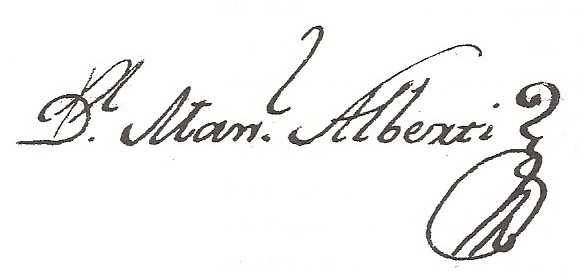 D.r Man.l Alberti